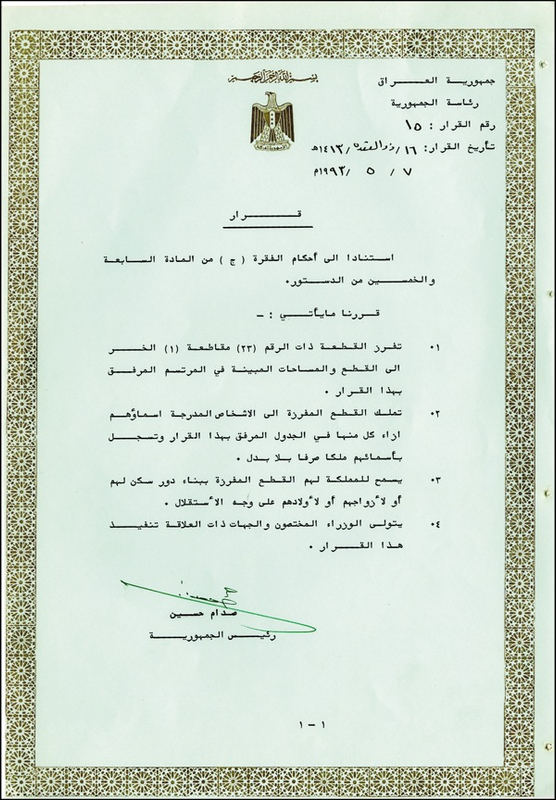 بسم الله الرحمن الرحيم
جمهورية العراق
رئاسة الجمهورية
رقم القرار : ١٥
تأريخ القرار: ١٦/ ذو القعدة /١٤١٣هـ
٧ / ٥ /١٩٩٣م
قرار
استنادا الى أحكام الفقرة ( ج ) من المادة السابعة
والخمسين من الدستور.
قررنا مايأتي : -
٠١ تفرز القطعة ذات الرقم (٢٣) مقاطعة (١) الخر
الى القطع والمساحات المبينة في المرتسم المرفق
بهذا القرار .
٠٢ تملك القطع المفرزة الى الاشخاص المدرجة اسماؤهم
ازاء كل منها في الجدول المرفق بهذا القرار وتسجل
بأسمائهم ملكا صرفا بلا بدل .
٠٣ يسمح للمملكة لهم القطع المفرزة ببناء دور سكن لهم
أو لأزواجهم أو لأولادهم على وجه الأستقلال .
٠٤ يتولى الوزراء المختصون والجهات ذات العلاقة تنفيذ
هذا القرار .
صدام حسين
رئيس الجمهورية
١ - ١